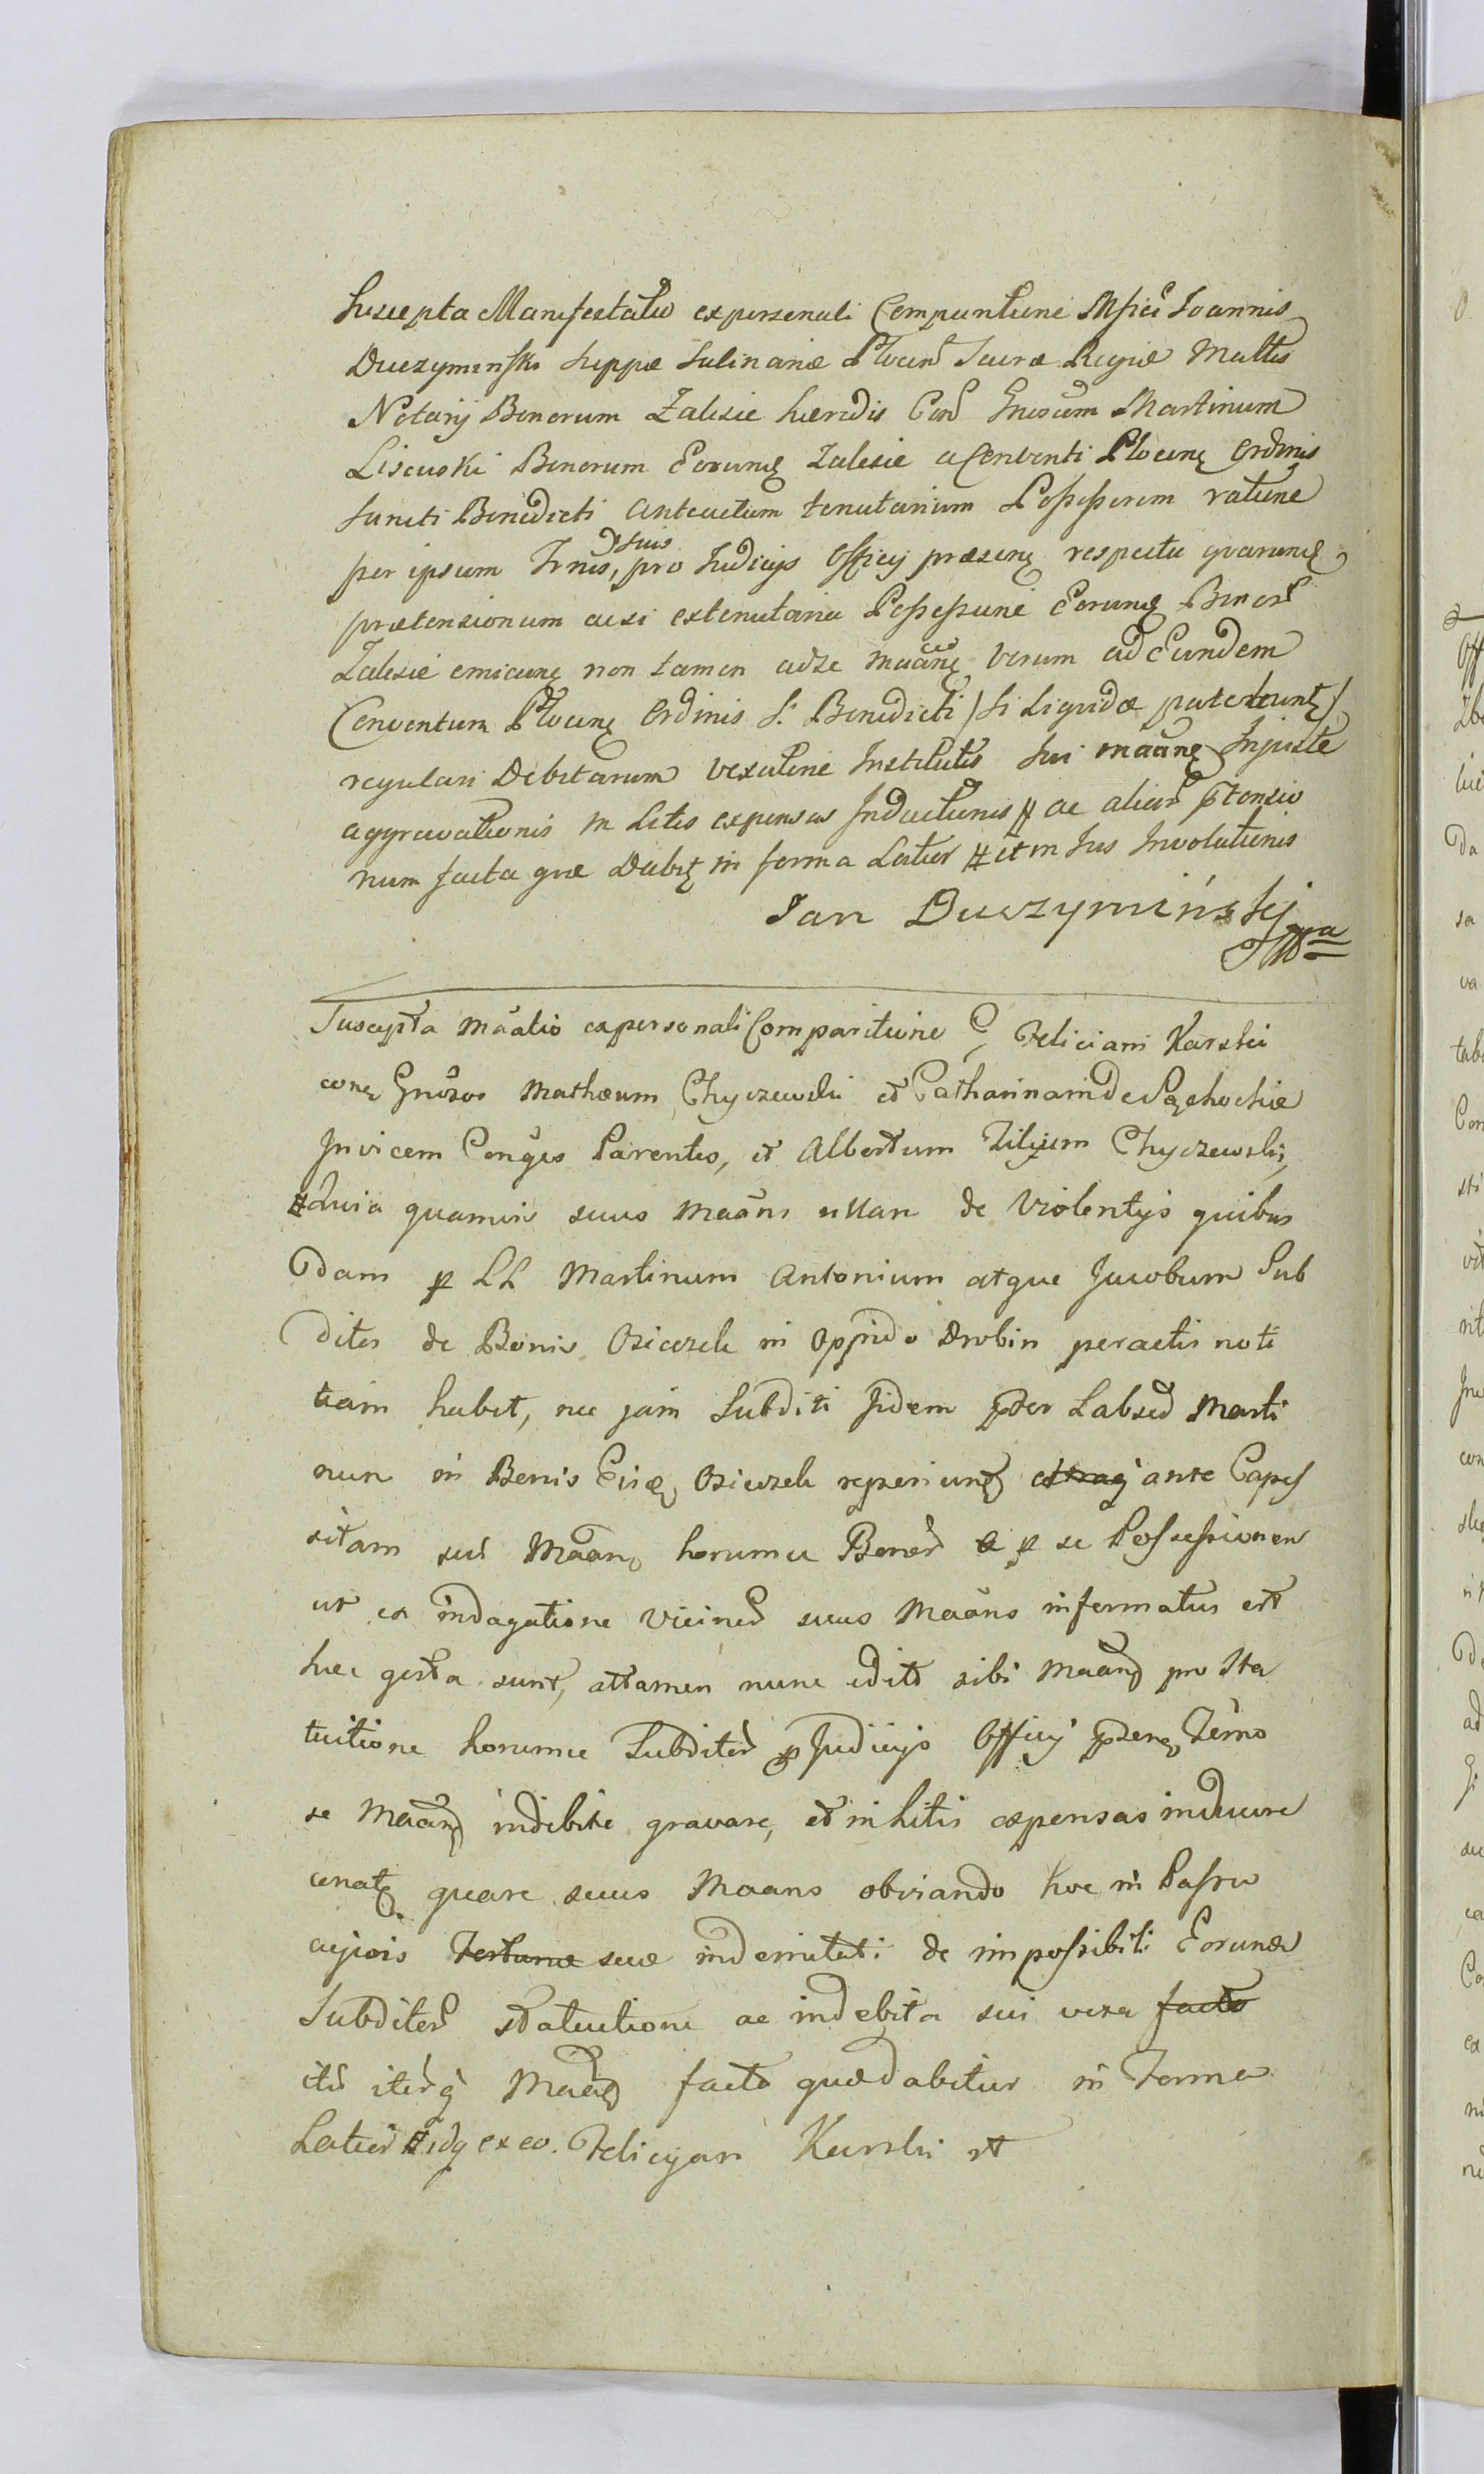 Suscepta Manifestatio ex personali Comparitione Mfici Joannis
Duczyminski Suppæ Salinariæ Plocen Sacræ Regiæ Mattis
Notarij Bonorum Zalesie hæredis Con Gnosum Martinum
Liscuski Bonorum Eorumq Zalesie a Conventi Plocenq Ordinis
Sancti Benedicti antenctum tenutarium Possessorem ratione
per ipsum Trnis, suis pro Judicijs Officij præsenq respectu quarumq
prætensionum acsi ex tenutaria Possessione Eorumq Bonor
Zalesie emicanq non tamen ad se maanq verum ad Eundem
Conventum Plocenq Ordinis S. Benedicti / si Liquidæ patebunt /
regulari Debitarum vexatione Institutis sui maanq Injuste
aggravationis in Litis expensas Inductionis # ac aliar ptensio
num facta quæ Dabit in forma Latior # et in Jus Involutionis
Jan Duczymiński
mpa
Suscepta maatio ex personali Comparitione G Feliciani Karski
conq Gnosos Mathæum Chyczewski et Catharinam de
Invicem Conges Parentes, et Albertum Filium Chyczewski,
# Quia quamvis suus Maans ullan de Violentijs quibus
dam p LL Martinum Antonium atque Jacobum Sub
ditos de Bonis Osieczek in Oppido Drobin peractis noti
tiam habet, nec jam Subditi Iidem pter Labsed Marti
num in Bonis Eisq Osieczek reperiunt ante Capes
sitam sui Maanq horumce Bonor p se Possessionem
ut ex indagatione vicinor suus Maans informatus est
hæc gesta sunt, attamen nunc edito sibi Maanq pro Sta
tuitione horumce Subditor p Judicijs Officij pzenq Termo
se Maanq indebite gravare, et in Litis expensas inducere
conatq quare suus Maans obviando hoc in Passu
cujvis Fortunæ suæ indemitati de impossibili Eorundem
Subditor statuitione ac indebita sui vexa facta
itr iterq Maanq facta quæ dabitur in Forma
Latior # idq ex eo. Felicyan Karski